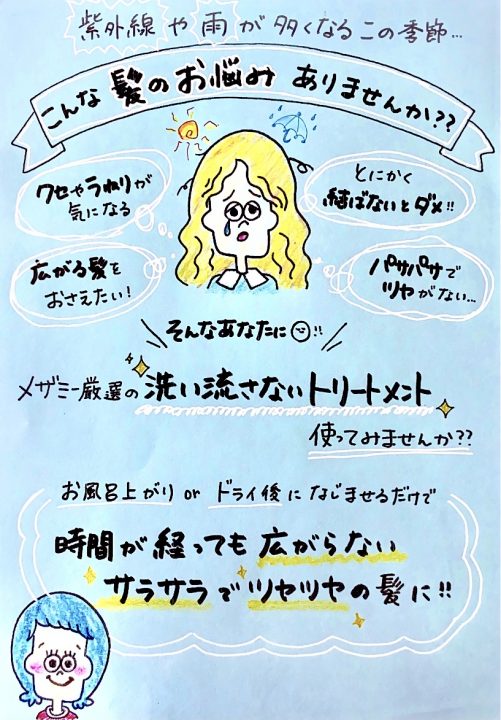 紫外線や雨が多くなるこの季節...
こんな髪のお悩みありませんか??
クセやうねりが
気になる
とにかく
結ばないとダメ!!
広がる髪を
おさえたい!
パサパサで
ツヤがない...
そんなあなたに!!
メザミー厳選の洗い流さないトリートメント
使ってみませんか??
お風呂上がり or ドライ後になじませるだけで
時間が経っても広がらない
サラサラでツヤツヤの髪に!!